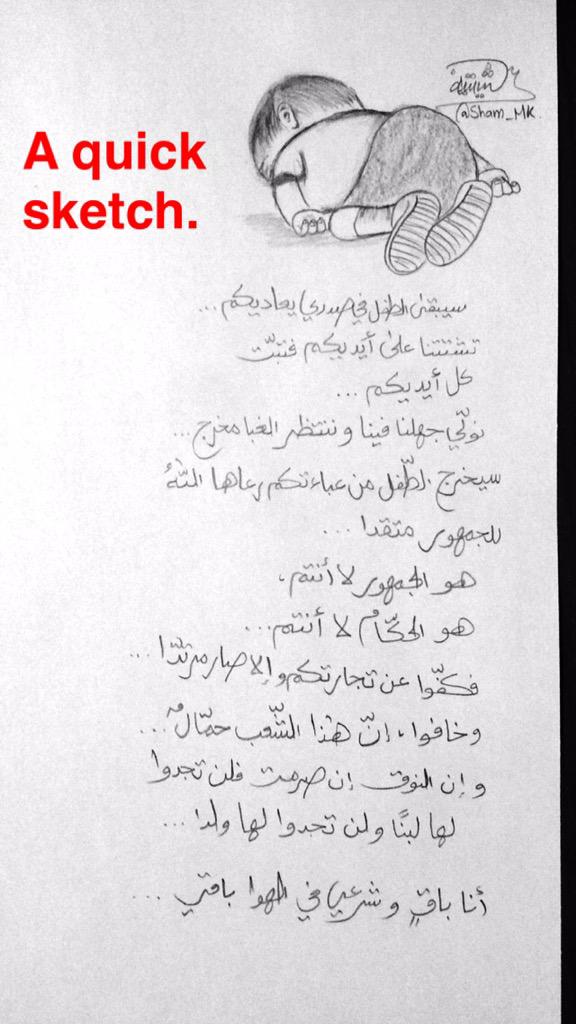 A quick
sketch.
@Sham_MK.
سيبقى الطفل في صدري يعاديكم ...
تشتتنا على أيديكم فتبّت
كل أيديكم ...
نولّي جهلنا فينا وننتظر الغبا مخرج ...
سيخرج الطّفل من عباءتكم رعاها اللّهُ
للجمهور متقدا ...
هو الجمهور لا أنتم،
هو الحكّامُ لا أنتم ...
فكفّوا عن تجارتكم وإلا صار مرتدّا ...
وخافوا، إنّ هٰذا الشّعب حمّالٌ ...
وإن النوق إن صرمت فلن تجدوا
لها لبنًا ولن تجدوا لها ولدا ...
أنا باقٍ وشرعي في الهوا باقي ...